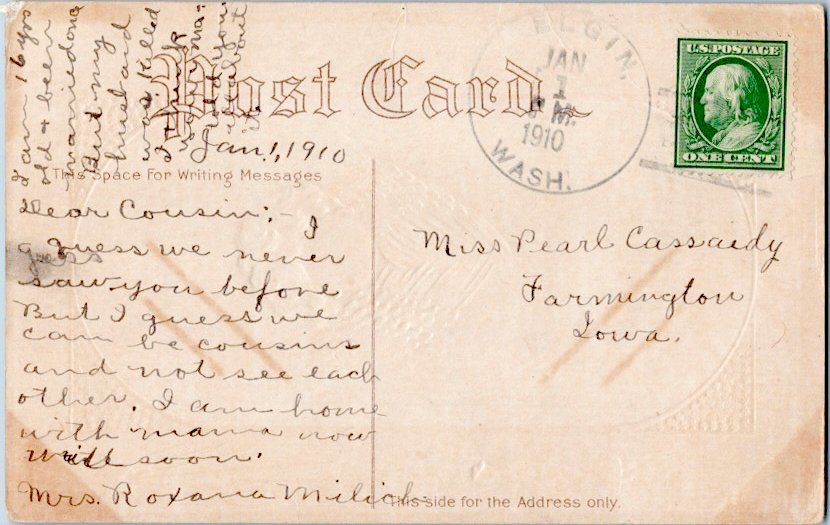 Post Card
ELGIN,
JAN
1
P M.
1910
WASH.
U.S. POSTAGE
ONE CENT
Jan. 1, 1910
This Space For Writing Messages
Dear Cousin:- I
guess we never
saw you before
But I guess we
can be cousins
and not see each
other. I am home
with mama now
soon.
Mrs. Roxana Milich
I am 16 yrs
old & been
married once
But my
husband
was killed
I
about
it
Miss Pearl Cassaidy
Farmington
Iowa.
This side for the Address only.